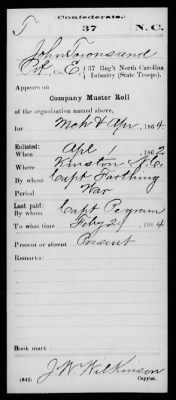 Confederate.
T 37 N.C.
John Townsand
Pvt, Co. E, 37 Reg't North Carolina
Infantry (State Troops).
Appears on
Company Muster Roll
of the organization named above,
for Mch & Apr, 1864
Enlisted:
When Apl 1, 1862
Where Kinston N.C.
By whom Capt Farthing
Period War
Last paid:
By whom Capt Pegram
To what time Feby 29, 1864
Present or absent Present
Remarks:
Book mark:
J. W. Wilkinson
(642) Copyist.